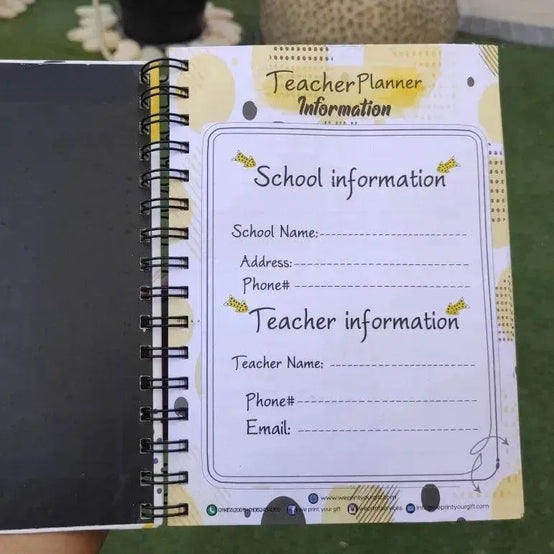 Teacher Planner
Information
School information
School Name:
Address:
Phone#
Teacher information
Teacher Name:
Phone#
Email:
www.weprintyourgift.com
We print, your gift